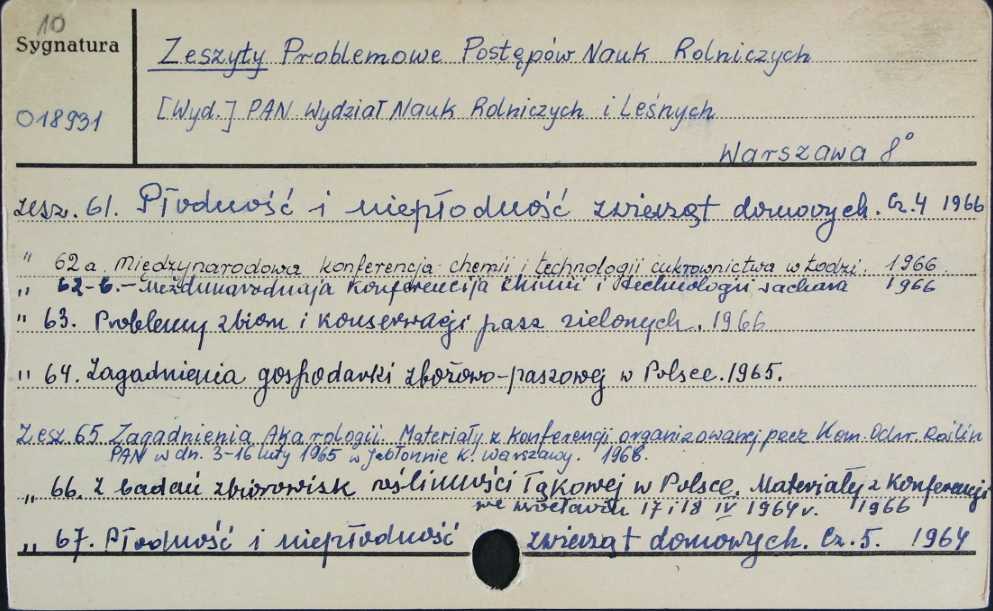 10
Sygnatura
018931
Zeszyty Problemowe Postępów Nauk Rolniczych
[Wyd.] PAN Wydział Nauk Rolniczych i Leśnych
Warszawa 8°
zesz. 61. Płodność i niepłodność zwierząt domowych. Cz. 4 1966
" 62a Międzynarodowa konferencja chemii i technologii cukrownictwa w Łodzi. 1966.
" 62-b. - Meżdunarodnaja Konferencija chimii i technologii sachara 1966
" 63. Problemy zbioru i konserwacji pasz zielonych. 1966
" 64. Zagadnienia gospodarki zbożowo-paszowej w Polsce. 1965.
Zesz. 65 Zagadnienia Akarologii. Materiały z konferencji organizowanej pecz Kom. Ochr. Roślin
PAN w dn. 3-16 luty 1965 w Jabłonnie k. Warszawy. 1968.
" 66. Z badań zbiorowisk roślinności łąkowej w Polsce. Materiały z Konferencji
we Wrocławiu 17 i 18 IV 1964 r. 1966
" 67. Płodność i niepłodność zwierząt domowych. Cz. 5. 1964